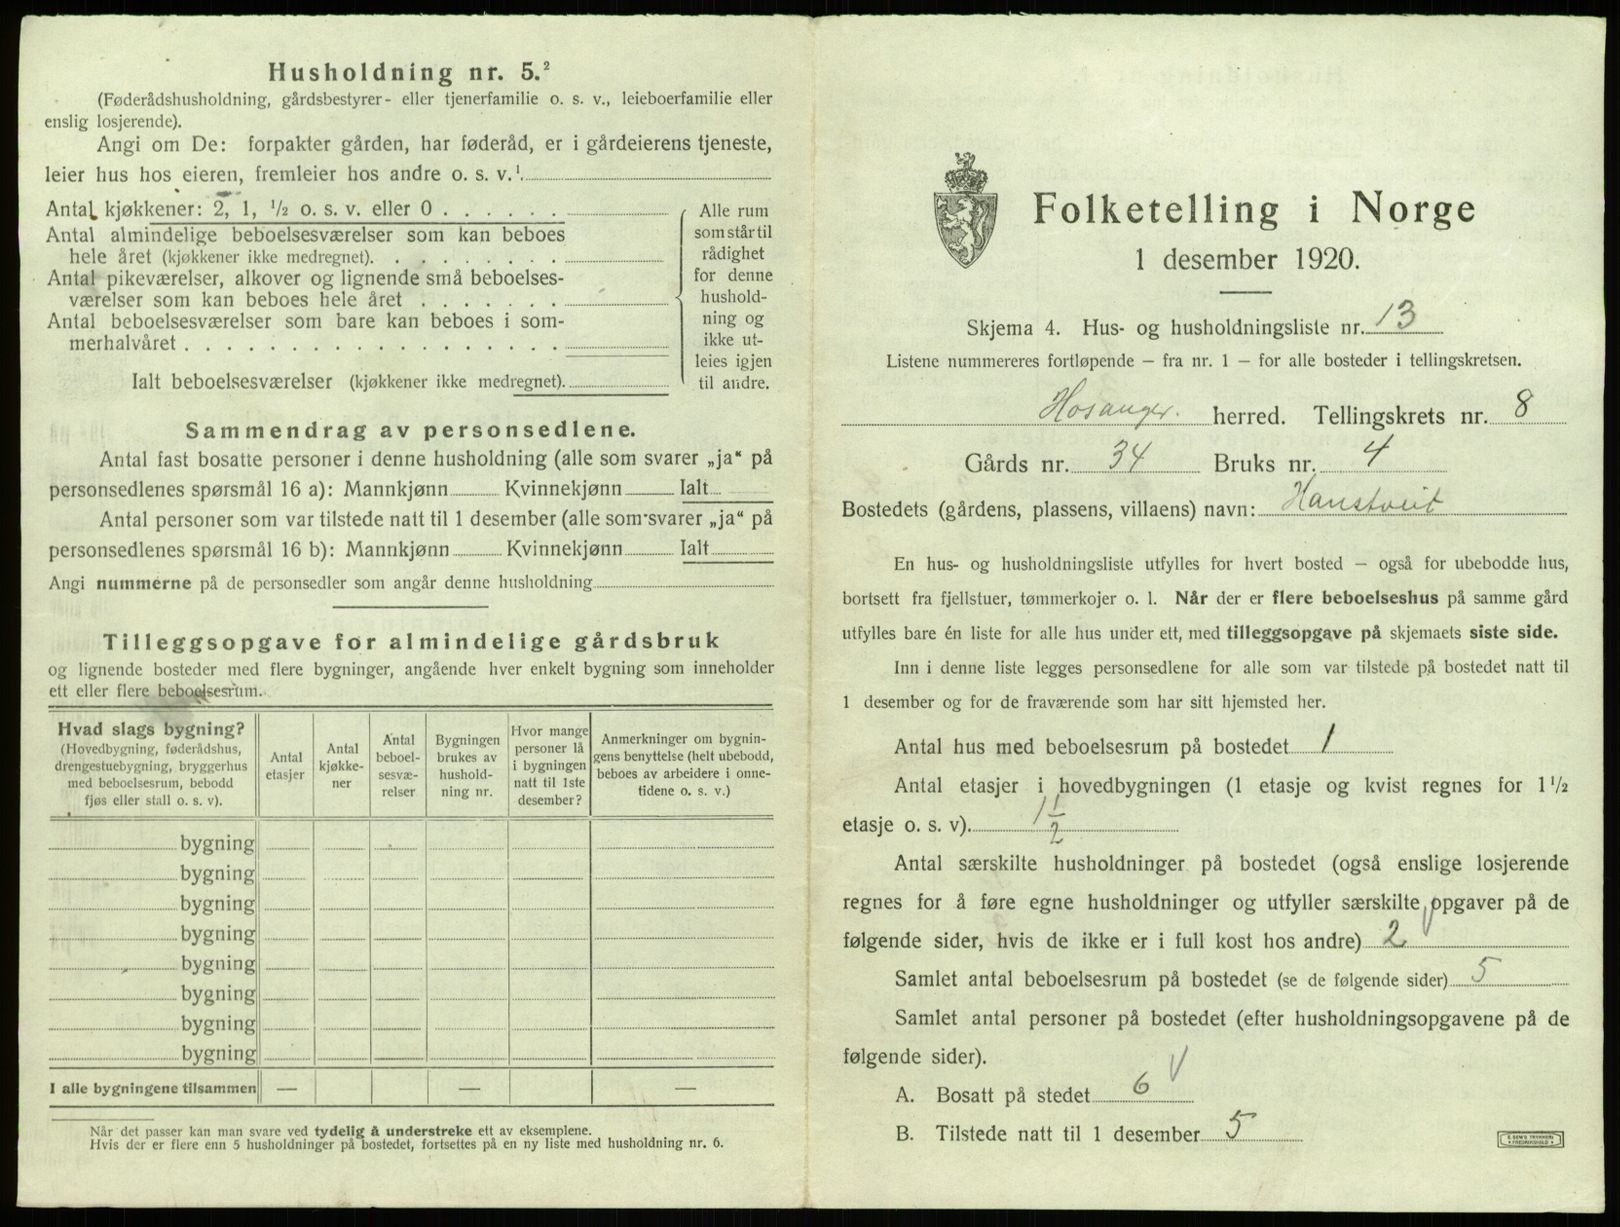 Husholdning nr. 5.²
(Føderådshusholdning, gårdsbestyrer- eller tjenerfamilie o. s. v., leieboerfamilie eller
enslig losjerende).
Angi om De: forpakter gården, har føderåd, er i gårdeierens tjeneste,
leier hus hos eieren, fremleier hos andre o. s. v.¹
Antal kjøkkener: 2, 1, ½ o. s. v. eller 0 . . . . . .
Antal almindelige beboelsesværelser som kan beboes
hele året (kjøkkener ikke medregnet). . . . . . . . .
Antal pikeværelser, alkover og lignende små beboelses-
værelser som kan beboes hele året . . . . . . .
Antal beboelsesværelser som bare kan beboes i som-
merhalvåret . . . . . . . . . . . . . . . . . .
Ialt beboelsesværelser (kjøkkener ikke medregnet).
Alle rum
som står til
rådighet
for denne
hushold-
ning og
ikke ut-
leies igjen
til andre.
Sammendrag av personsedlene.
Antal fast bosatte personer i denne husholdning (alle som svarer „ja“ på
personsedlenes spørsmål 16 a): Mannkjønn Kvinnekjønn Ialt
Antal personer som var tilstede natt til 1 desember (alle som svarer „ja“ på
personsedlenes spørsmål 16 b): Mannkjønn Kvinnekjønn Ialt
Angi nummerne på de personsedler som angår denne husholdning
Tilleggsopgave for almindelige gårdsbruk
og lignende bosteder med flere bygninger, angående hver enkelt bygning som inneholder
ett eller flere beboelsesrum.
Hvad slags bygning?
(Hovedbygning, føderådshus,
drengestuebygning, bryggerhus
med beboelsesrum, bebodd
fjøs eller stall o. s. v).
Antal
etasjer
Antal
kjøkke-
ner
Antal
beboel-
sesvæ-
relser
Bygningen
brukes av
hushold-
ning nr.
Hvor mange
personer lå
i bygningen
natt til 1ste
desember?
Anmerkninger om bygnin-
gens benyttelse (helt ubebodd,
beboes av arbeidere i onne-
tidene o. s. v.)
bygning
bygning
bygning
bygning
bygning
bygning
bygning
bygning
I alle bygningene tilsammen — — —
Når det passer kan man svare ved tydelig å understreke ett av eksemplene.
Hvis der er flere enn 5 husholdninger på bostedet, fortsettes på en ny liste med husholdning nr. 6.
Folketelling i Norge
1 desember 1920.
Skjema 4. Hus- og husholdningsliste nr. 13
Listene nummereres fortløpende — fra nr. 1 — for alle bosteder i tellingskretsen.
Hosanger. herred. Tellingskrets nr. 8
Gårds nr. 34 Bruks nr. 4
Bostedets (gårdens, plassens, villaens) navn: Hanstveit
En hus- og husholdningsliste utfylles for hvert bosted — også for ubebodde hus,
bortsett fra fjellstuer, tømmerkojer o. l. Når der er flere beboelseshus på samme gård
utfylles bare én liste for alle hus under ett, med tilleggsopgave på skjemaets siste side.
Inn i denne liste legges personsedlene for alle som var tilstede på bostedet natt til
1 desember og for de fraværende som har sitt hjemsted her.
Antal hus med beboelsesrum på bostedet 1
Antal etasjer i hovedbygningen (1 etasje og kvist regnes for 1½
etasje o. s. v). 1 1/2
Antal særskilte husholdninger på bostedet (også enslige losjerende
regnes for å føre egne husholdninger og utfyller særskilte opgaver på de
følgende sider, hvis de ikke er i full kost hos andre) 2
Samlet antal beboelsesrum på bostedet (se de følgende sider) 5
Samlet antal personer på bostedet (efter husholdningsopgavene på de
følgende sider).
A. Bosatt på stedet 6
B. Tilstede natt til 1 desember 5